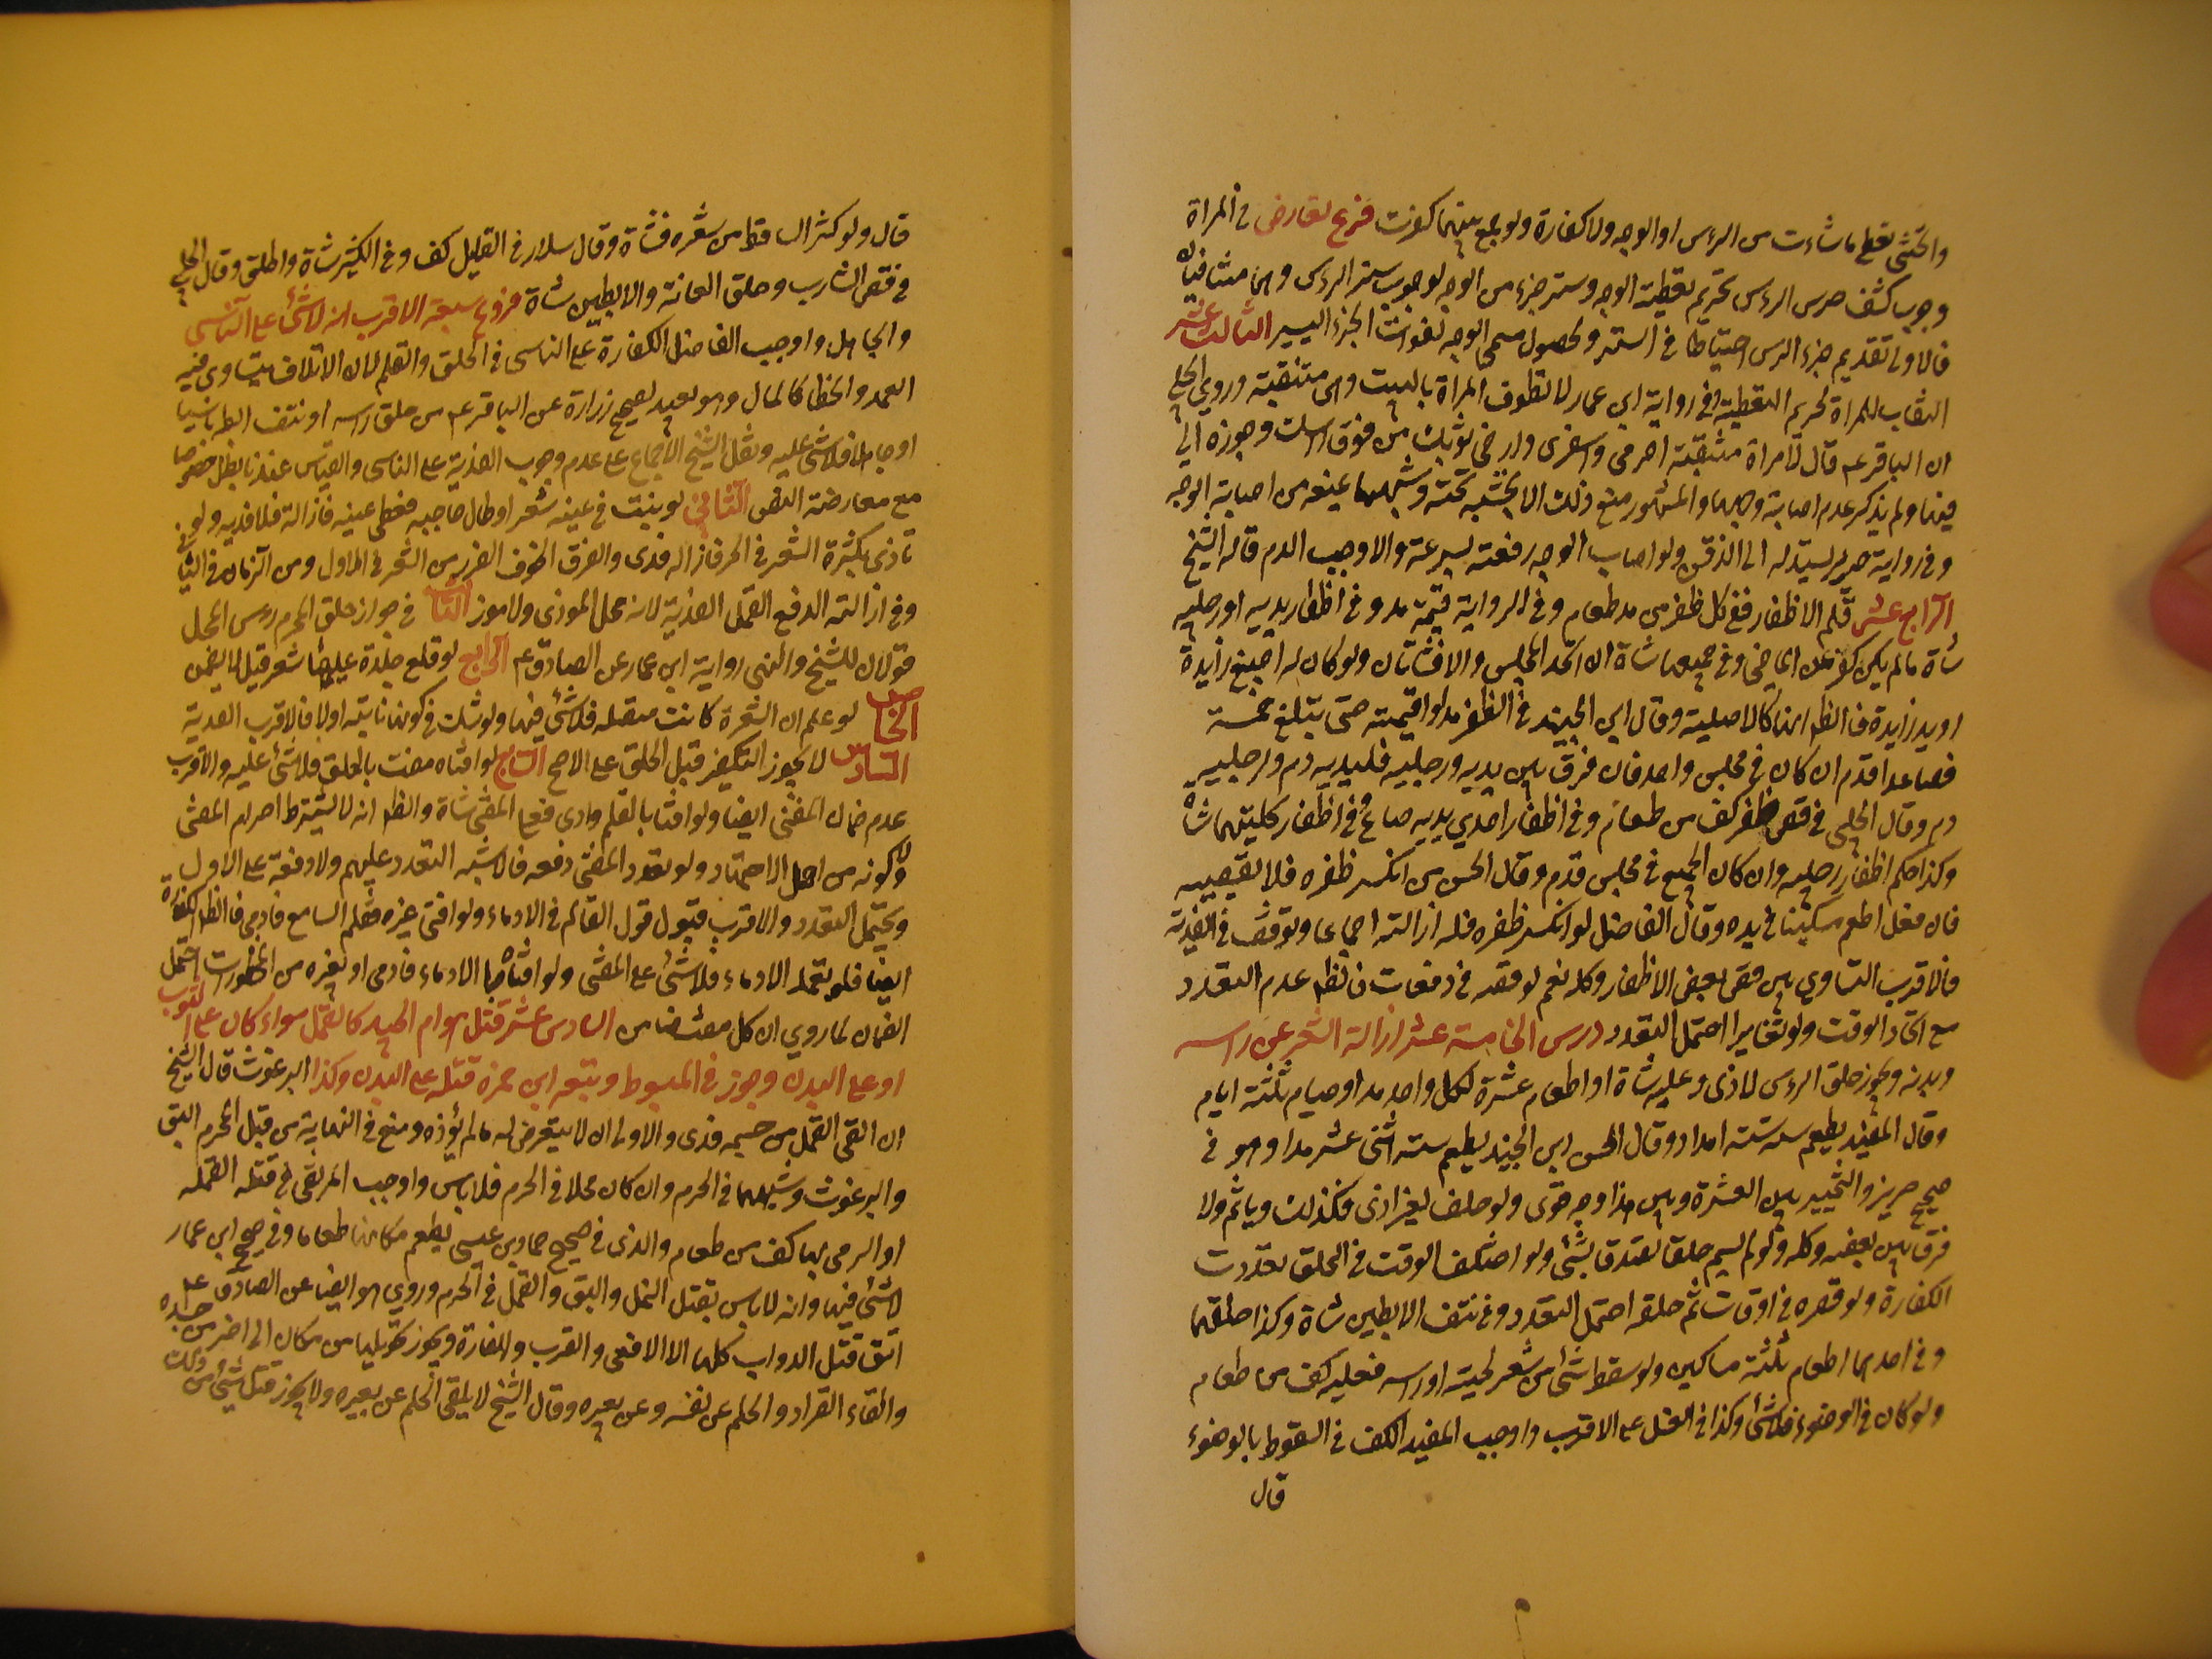 والخنثى تغطي ما شاءت من الراس او الوجه ولا كفارة ولو جمع بينهما كفرت فرع تعارض في المراة
وجوب كشف الراس تحريم تغطية الوجه وستر جزء من الوجه لوجوب ستر الراس وهما متنافيان
فالاولى تقديم جزء الراس احتياطا في الستر ولحصول مسمى الوجه بفوات الجزء اليسير الثالث عشر
النقاب للمراة لتحريم التغطية وفي رواية ابن عمار لا تطوف المراة بالبيت وهي متنقبة وروي الحلبي
ان الباقر عم قال لامراة متنقبة احرمي واسفري وارخي ثوبك من فوق راسك وجوزه الى
فيها ولم يذكر عدم اصابة وجهها والمشهور منع ذلك الا بخشبة تحته وشبهها يمنعه من اصابة الوجه
وفي رواية حريز تسدله الى الذقن ولو اصاب الوجه رفعته بسرعة والا وجب الدم قاله الشيخ
الرابع عشر قلم الاظفار ففي كل ظفر مد طعام وفي الرواية قيمة مد وفي اظفار يديه او رجليه
شاة ما لم يكن كفر عن الماضي وفي جميعها شاة ان اتحد المجلس والا فشاتان ولو كان له اصبع زايدة
او يد زايدة فالظ انها كالاصلية وقال ابن الجنيد في الظفر مد او قيمته حتى يبلغ خمسة
فصاعدا فدم ان كان في مجلس واحد فان فرق بين يديه ورجليه فليديه دم ولرجليه
دم وقال الحلبي في قص ظفر كف من طعام وفي اظفار احدي يديه صاع وفي اظفار كلتيهما شاة
وكذا حكم اظفار رجليه وان كان الجميع في مجلس فدم وقال الحسن من انكسر ظفره فلا يقصه
فان فعل اطعم مسكينا في يده وقال الفاضل لو انكسر ظفره فله ازالته اجماعا وتوقف في الفدية
فالاقرب التساوي بين قص بعض الاظفار وكله نعم لو قصه في دفعات فالظ عدم التعدد
مع اتحاد الوقت ولو تغايرا احتمل التعدد درس الخامسة عشر ازالة الشعر عن راسه
وبدنه ويجوز حلق الراس لاذى وعليه شاة او اطعام عشرة لكل واحد مد او صيام ثلثة ايام
وقال المفيد يطعم ستة ستة امداد وقال الحسن ابن الجنيد يطعم ستة اثنى عشر مدا وهو في
صحيح حريز والتخيير بين العشرة وبين هذا وجه قوى ولو حلق لغير اذى فكذلك وياثم ولا
فرق بين بعضه وكله ولو لم يسم حلقا تصدق بشئ ولو اختلف الوقت في الحلق تعددت
الكفارة ولو قصره في اوقات ثم حلقه احتمل التعدد وفي نتف الابطين شاة وكذا حلقهما
وفي احدهما اطعام ثلثة مساكين ولو سقط شئ من شعر لحيته او راسه فعليه كف من طعام
ولو كان في الوضوء فلا شئ وكذا في الغسل على الاقرب واوجب المفيد الكف في السقوط بالوضوء
قال
قال ولو كثر الساقط من شعره فشاة وقال سلار في القليل كف وفي الكثير شاة واطلق وقال الحلبي
في قص الشارب وحلق العانة والابطين شاة فروع سبعة الاقرب انه لا شئ على الناسي
والجاهل واوجب الفاضل الكفارة على الناسي في الحلق والقلم لان الاتلاف يتساوى فيه
العمد والخطا كالمال وهو بعيد لصحيح زرارة عن الباقر عم من حلق راسه او نتف ابطه ناسيا
او جاهلا فلا شئ عليه ونقل الشيخ الاجماع على عدم وجوب الفدية على الناسي والقياس عندنا بطل خصوصا
مع معارضة النص الثاني لو نبت في عينه شعر او طال حاجبه فغطى عينه فازاله فلا فدية ولو
تاذى بكثرة الشعر في الحر فازاله فدى والفرق الخوف الضرر من الشعر في الاول ومن الزمان في الثا
وفي ازالته لدفع القمل الفدية لانه محل الموذى ولا موذ الثالث في جواز حلق المحرم راس المحل
قولان للشيخ والنهي رواية ابن عمار عن الصادق عم الرابع لو قلع جلدة عليها شعر قيل لا يضمن
الخامس لو علم ان الشعرة كانت منفصلة فلا شئ فيها ولو شك في كونها نابتة اولا فالاقرب الفدية
السادس لا يجوز التكفير قبل الحلق على الاصح السابع لو افتاه مفت بالحلق فلا شئ عليه والاقرب
عدم ضمان المفتى ايضا ولو افتا بالقلم وادمى فعلى المفتى شاة والظ انه لا يشترط احرام المفتى
ولا كونه من اهل الاجتهاد ولو تعدد المفتى دفعه فالاشبه التعدد عليهم ولا دفعة على الاول
ويحتمل التعدد والاقرب قبول قول القالم في الادماء ولو افتى غيره فقلم السامع فادمى فالظ الكفارة
ايضا فلو تعمد الادماء فلا شئ على المفتى ولو افتاه بالادماء فادمى او بغيره من المحظورات احتمل
الضمان لما روي ان كل مفت ضامن السادس عشر قتل هوام الجسد كالقمل سواء كان على الثوب
او على البدن وجوز في المبسوط وتبعه ابن حمزة قتله على البدن وكذا البرغوث قال الشيخ
ان القى القمل من جسمه فدى والاولى ان لا يتعرض له ما لم يؤذه ومنع في النهاية من قتل المحرم البق
والبرغوث وشبههما في الحرم وان كان محلا في الحرم فلا باس واوجب المرتضى في قتله القملة
او الرمى بها كف من طعام والذى في صحيح حماد بن عيسى يطعم مكانها طعاما وفي صحيح ابن عمار
لا شئ فيها وانه لا باس بقتل النمل والبق والقمل في الحرم وروي هو ايضا عن الصادق عم
اتق قتل الدواب كلها الا الافعى والعقرب والفارة ويجوز تحويلها من مكان الى اخر من جسده
والقاء القراد والحلم عن نفسه وعن بعيره وقال الشيخ لا يلقى الحلم عن بعيره ولا يجوز قتل شئ من ذلك